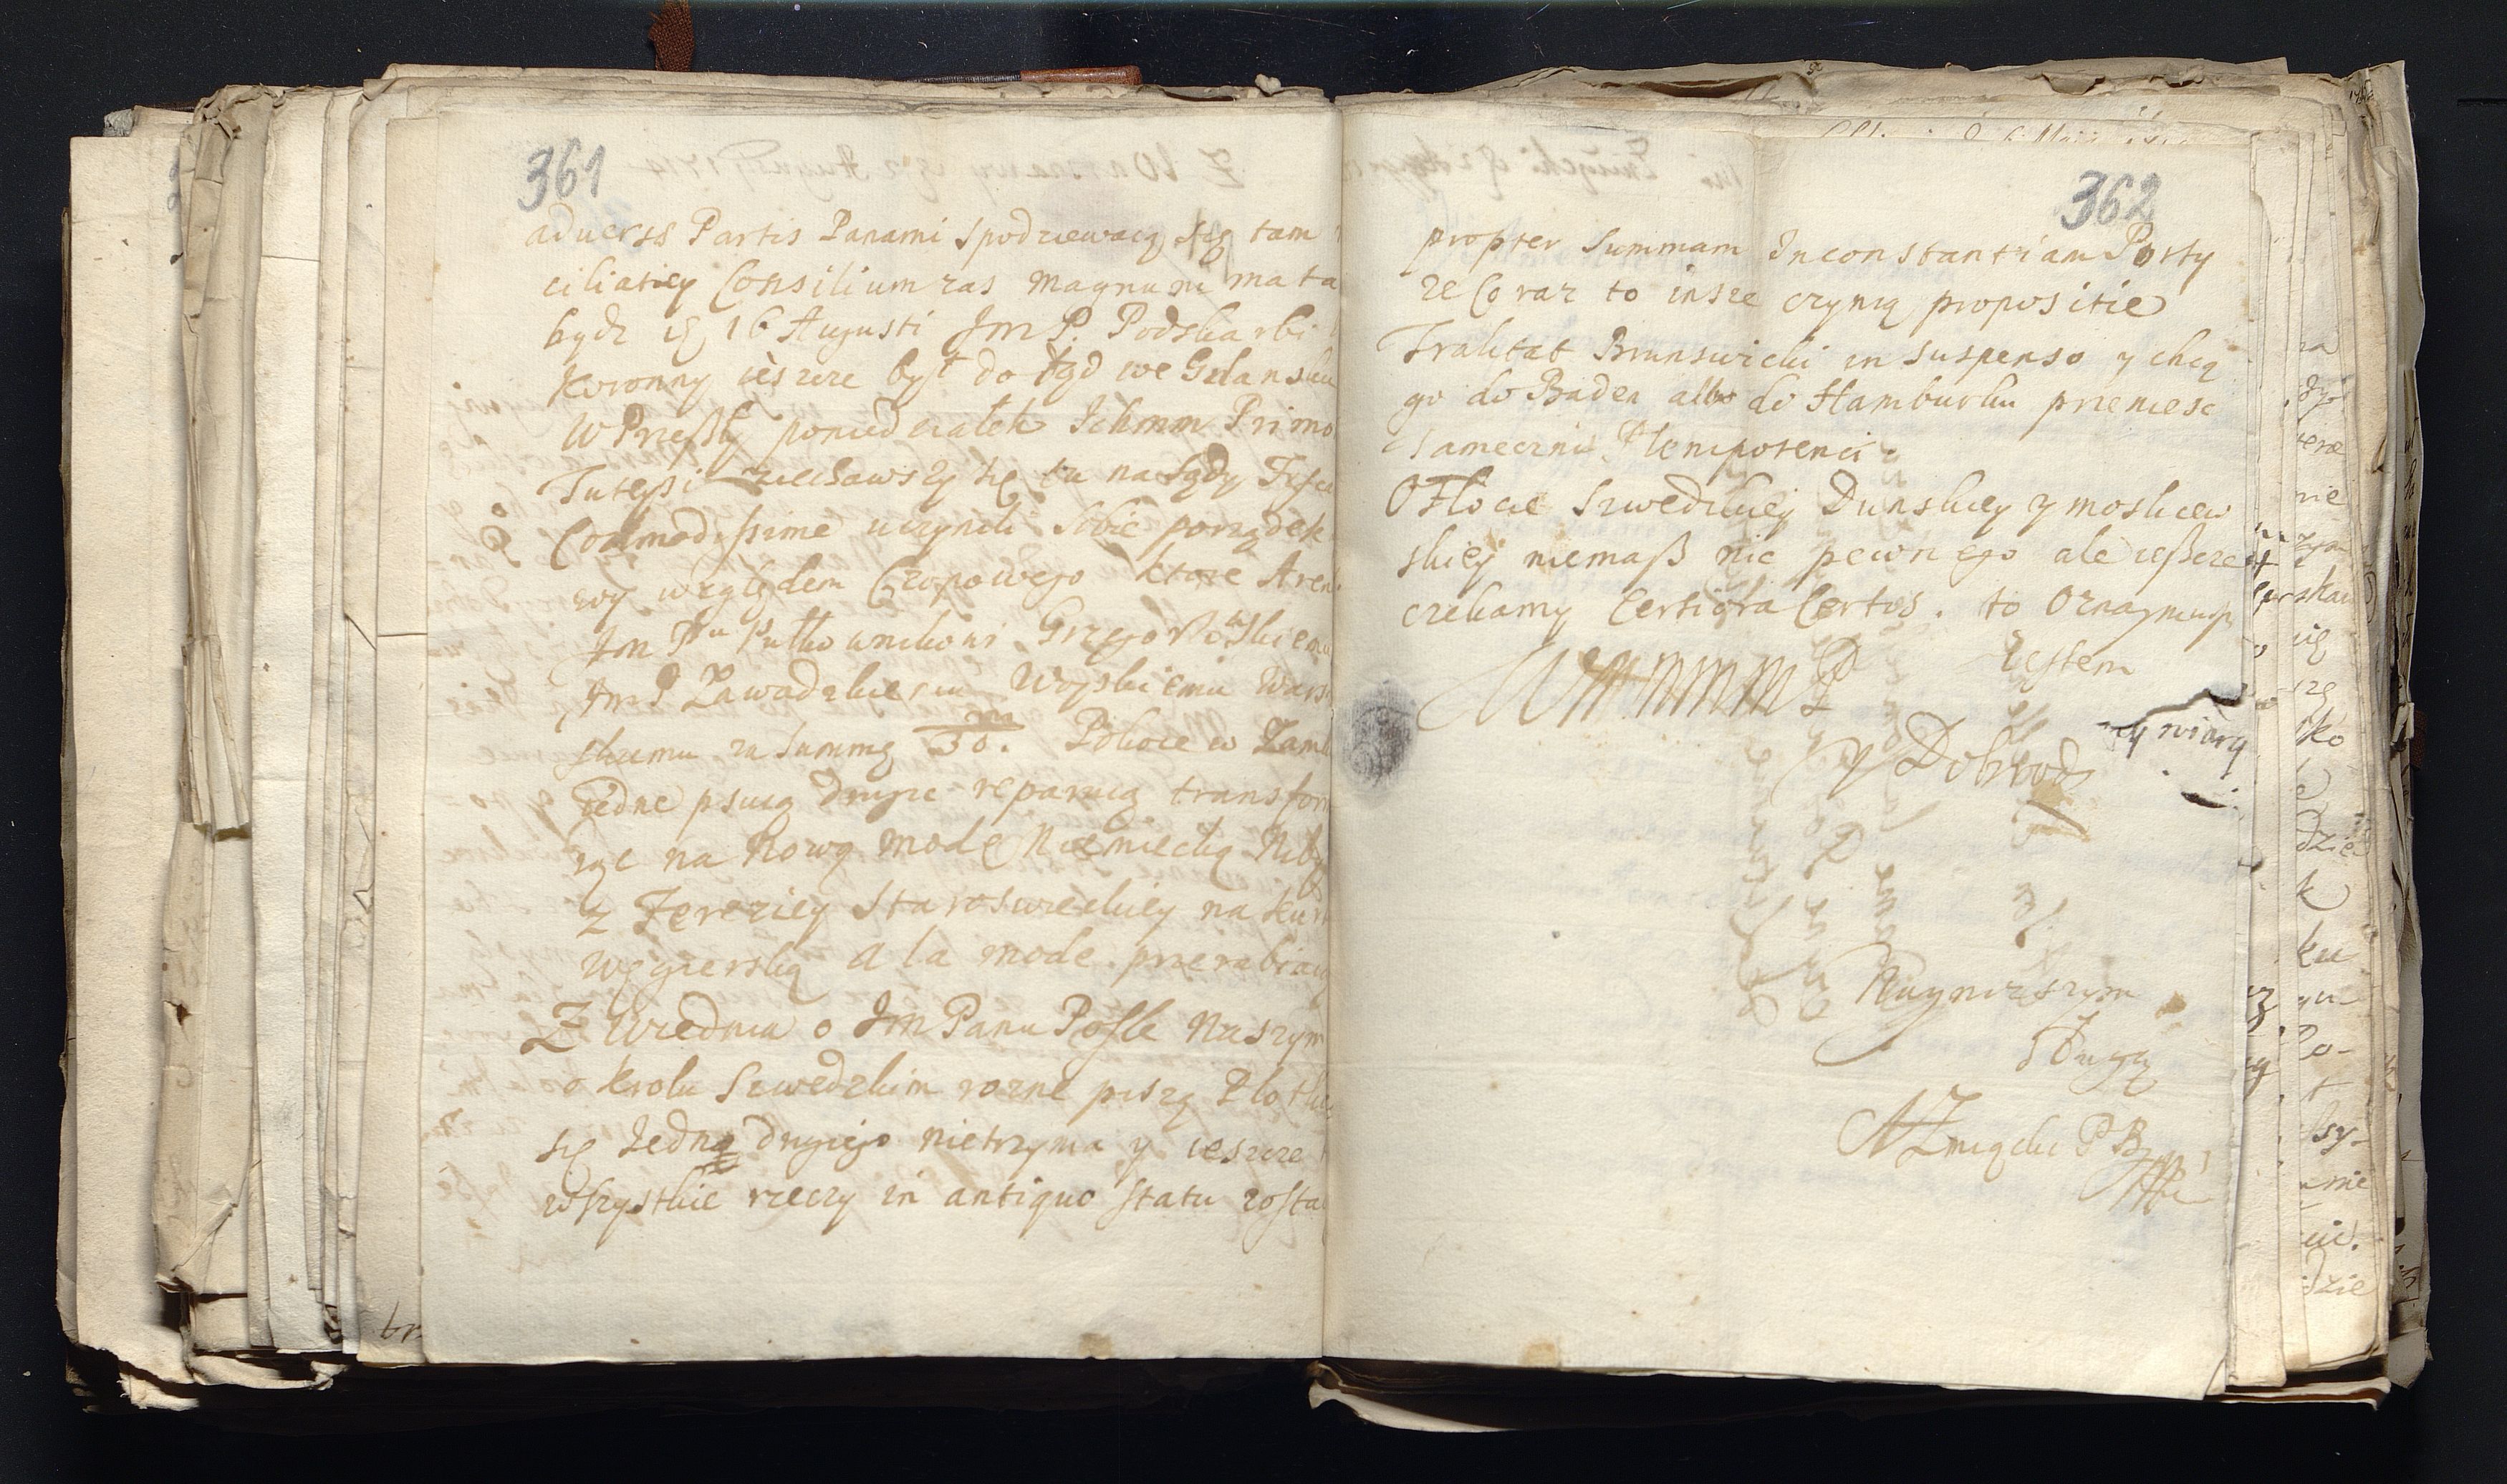 361
adverss Partis Panami spodziewaią się tam
ciliatiey Consilium zas magnum ma ta
bydz 16 Augusti Jm P. Podskarbi
Koronny ieszcze był do tąd we Gdansku
W Przeszły poniedziałek Ichmm Primo
Tuteysi ziechawszy się tu na Sądy
Commodissime uczynili sobie porządek
względem Czopowego ktore Aren
Jm Pu Pułkownikowi Grzegorzewskiemu
Jm P Zawadzkiemu Woyskiemu Warsz
skiemu za summę 30. m Pokoie w Zamk
iedne psuią drugie reparuią transfor
iąc na Nową mode Niemiecką Niby
z Fereziey staroswieckiey na kur
Węgierską a la mode przerabiaią
Z Wiednia o Jm Panu Posle Naszym
o krolu Szwedzkim rozne piszą Plotki
się Jedna drugiego nietrzyma y ieszcze
wszystkie rzeczy in antiquo statu zosta
362
propter summam Inconstantiam Porty
ze Co raz to insze czynią propositie
Traktat Brunswicki in suspenso y chcą
go do Baden albo do Hamburku przeniesc
Plenipotenci.
O Flocie Szwedzkiey Dunskiey y moskiew
skiey niemasz nic pewnego ale ieszcze
czekamy Certiora Certos. to Oznaymuię
Iestem
WMMMMP
y Dobrodz
Naynizszym
sługą
MZmigcki PB